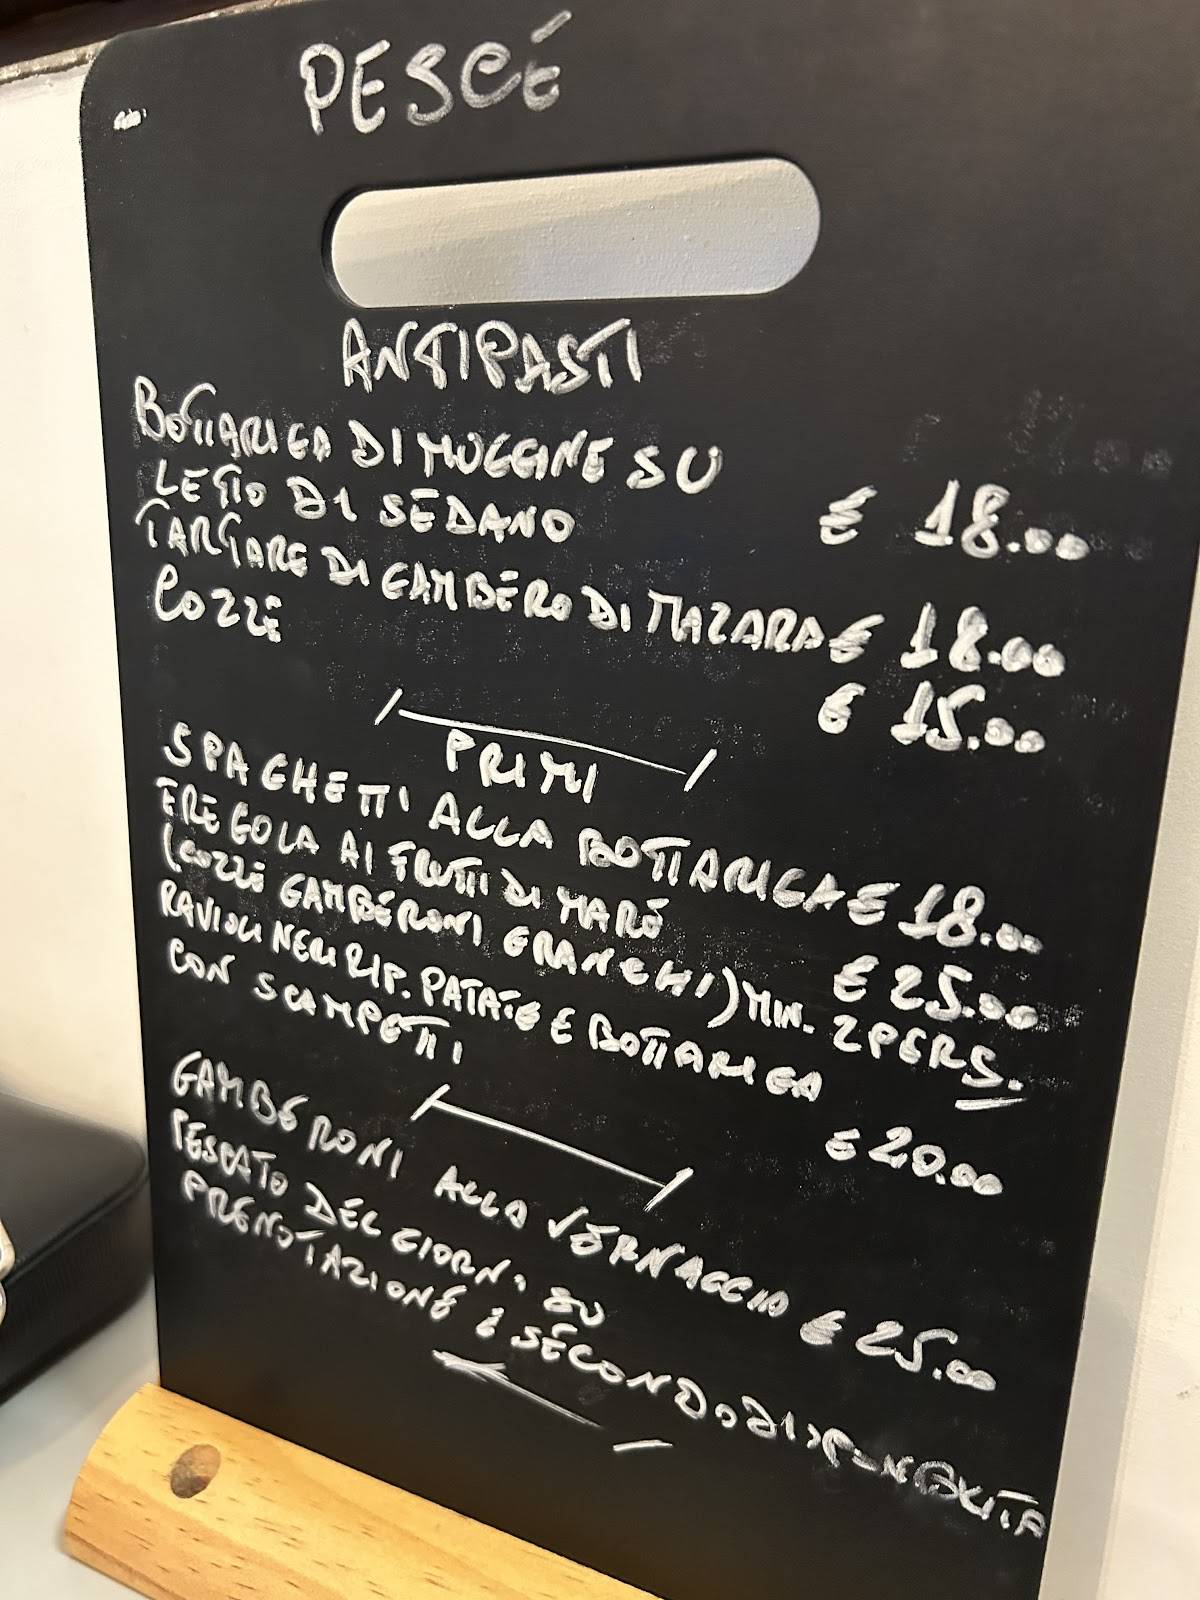 PESCE
ANTIPASTI
BOTTARIGA DI MUGGINE SU
LETTO DI SEDANO € 18.00
TARTARE DI GAMBERO DI MAZARA € 18.00
COZZE € 15.00
PRIMI
SPAGHETTI ALLA BOTTARIGA € 18.00
FREGOLA AI FRUTTI DI MARE € 25.00
(COZZE GAMBERONI GRANCHI) MIN. 2 PERS.
RAVIOLI NERI RIP. PATATE E BOTTARIGA
CON SCAMPETTI € 20.00
GAMBERONI ALLA VERNACCIA € 25.00
PESCATO DEL GIORNO SU
PRENOTAZIONE E SECONDO DISPONIBILITA